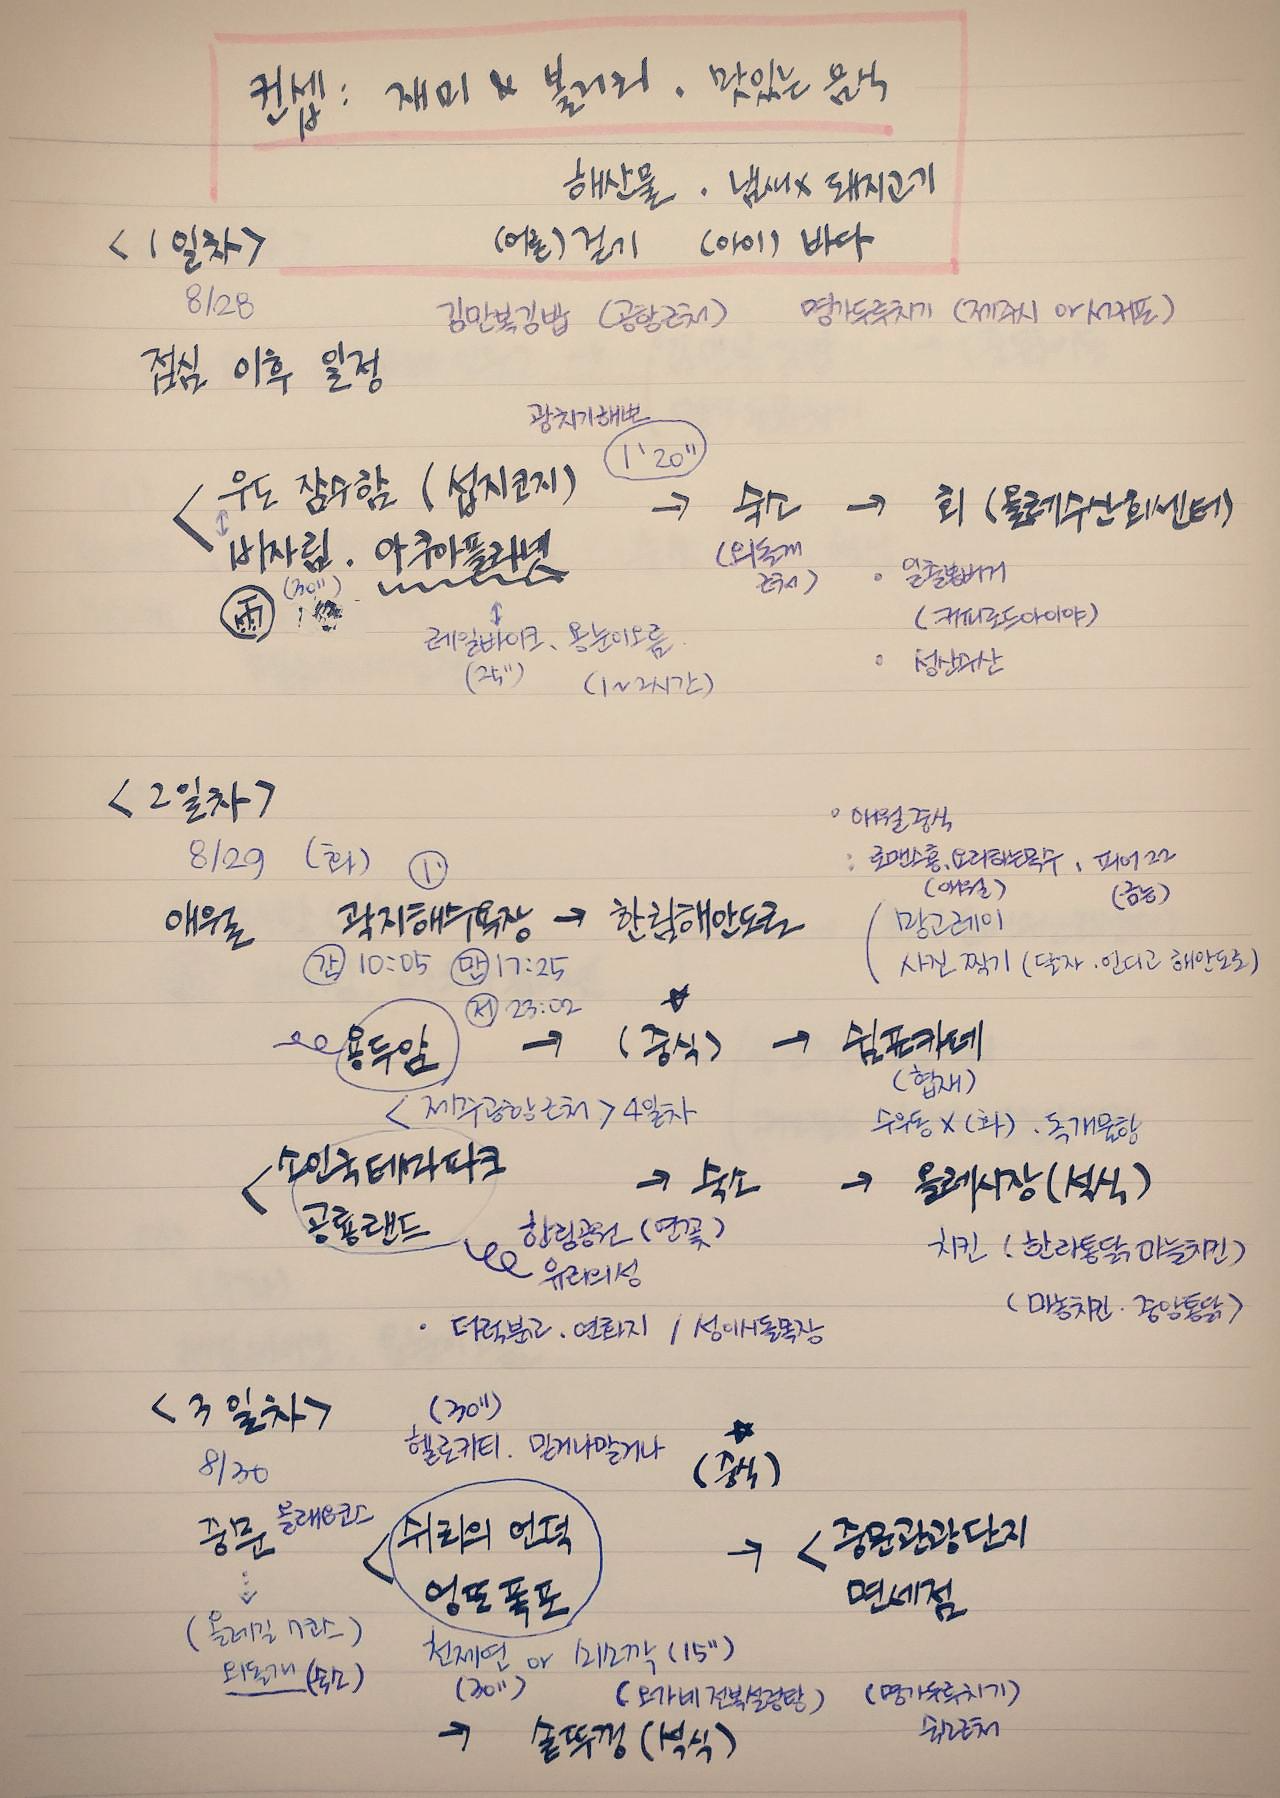 컨셉: 재미 & 볼거리. 맛있는 음식
해산물 . 냄새x 돼지고기
(어른) 걷기 (아이) 바다
<1일차>
8/28
김만복김밥 (공항근처) 명가두루치기 (제주시 or 서귀포)
점심 이후 일정
광치기해변
1'20"
우도 잠수함 (섭지코지) → 숙소 → 회 (올레수산회센터)
비자림 . 아쿠아플라넷
(외돌개 근처)
(30")
雨
• 일출봉버거
(커피로드아이야)
레일바이크、용눈이오름
(25") (1~2시간)
• 청산리산
<2일차>
8/29 (화) 1'
• 애월 중식
: 로맨스홍、요리하는목수 、 피어22
(애월) (금능)
애월 곽지해수욕장 → 한림해안도로
망고레이
사진 찍기 (달자 . 인디고 해안도로)
간 10:05 만 17:25
저 23:02
용두암 → (중식) → 쉼표카페
(협재)
<제주공항근처> 4일차
수우동 x (화) . 독개물항
소인국테마파크
공룡랜드
→ 숙소 → 올레시장 (석식)
한림공원 (연꽃)
유리의성
치킨 (한라통닭 마늘치킨)
(마농치킨 . 중앙통닭)
• 더럭분교 . 연화지 / 성이시돌목장
<3일차>
8/30
(30")
헬로키티. 믿거나말거나
(중식)
중문 올래8코스
쉬리의 언덕
엉또폭포
→ < 중문관광단지
면세점
(올레길 7코스)
외돌개 (숙소)
천제연 or (15")
(30") (오가네전복설렁탕) (명가두루치기)
숙소근처
→ 솥뚜껑 (석식)